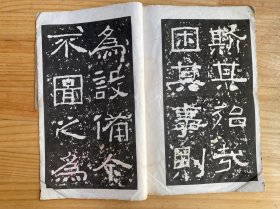 斯其殆哉
困其事則
為設備今
不圖之為